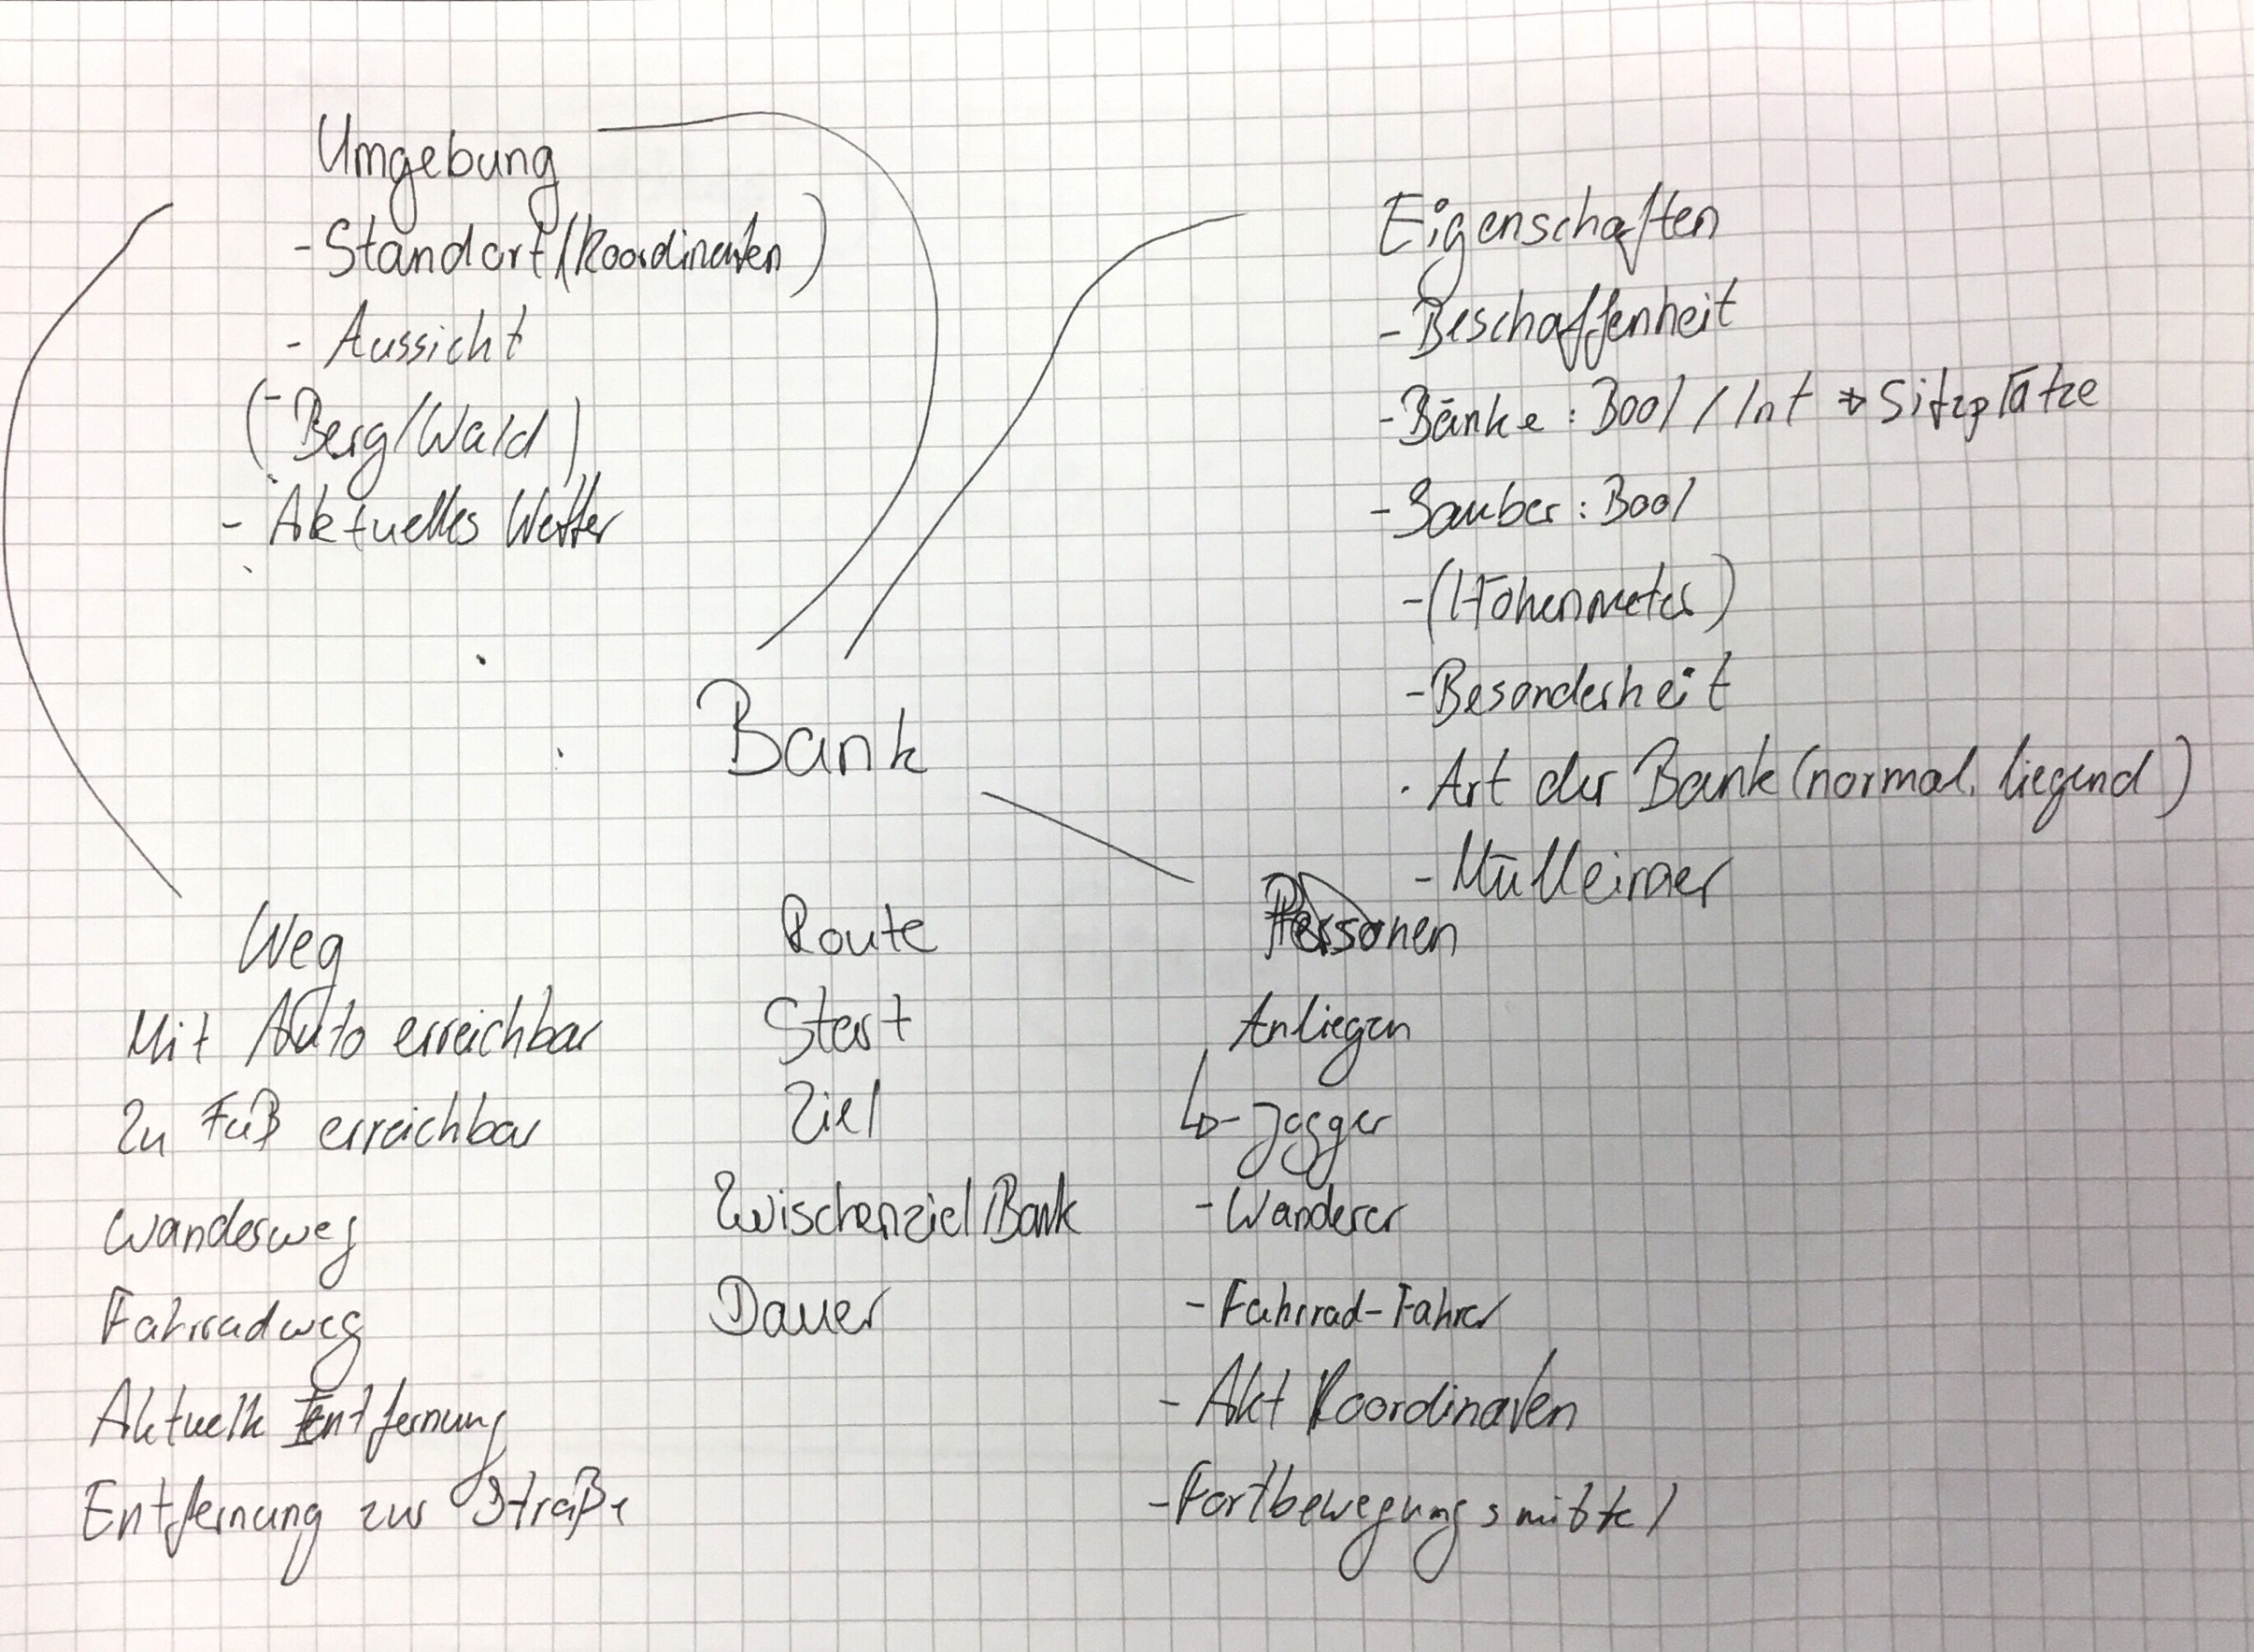 Umgebung
- Standort (Koordinaten)
- Aussicht
(- Berg/Wald)
- Aktuelles Wetter
Eigenschaften
- Beschaffenheit
- Bänke : Bool / Int → Sitzplätze
- Sauber : Bool
- (Höhenmeter)
- Besonderheit
- Art der Bank (normal, liegend)
- Mülleimer
Bank
Weg
Mit Auto erreichbar
Zu Fuß erreichbar
Wanderweg
Fahrradweg
Aktuelle Entfernung
Entfernung zur Straße
Route
Start
Ziel
Zwischenziel/Bank
Dauer
Personen
Anliegen
↳ - Jogger
- Wanderer
- Fahrrad-Fahrer
- Akt Koordinaten
- Fortbewegungsmittel